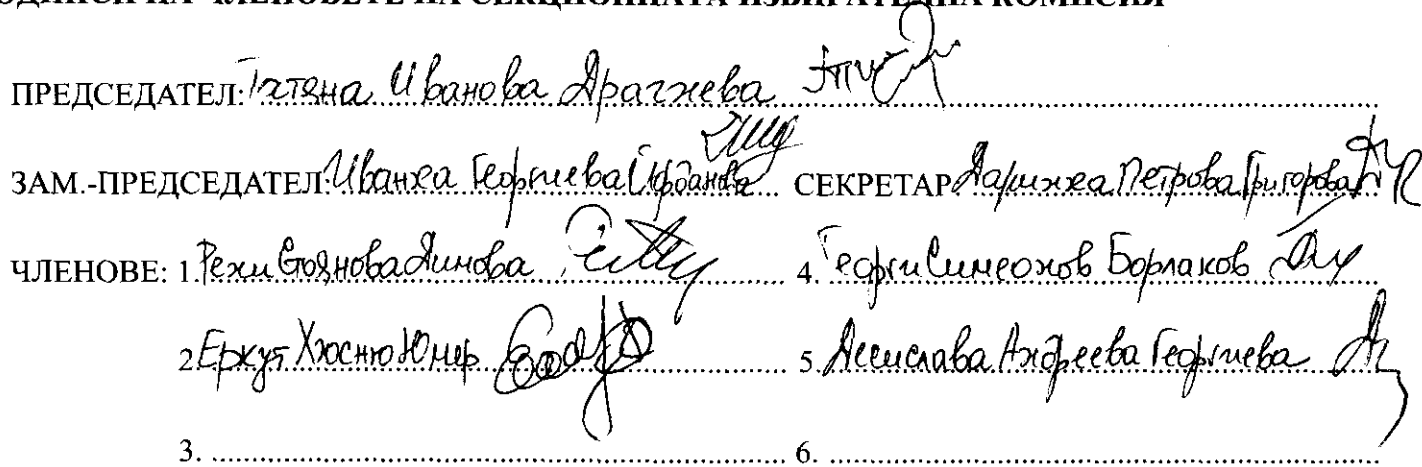 ПОДПИСИ НА ЧЛЕНОВЕТЕ НА СЕКЦИОННАТА ИЗБИРАТЕЛНА КОМИСИЯ
ПРЕДСЕДАТЕЛ: Татяна Иванова Драгнева
ЗАМ.-ПРЕДСЕДАТЕЛ: Иванка Георгиева Йорданова СЕКРЕТАР Даринка Петрова Григорова
ЧЛЕНОВЕ: 1. Рени Стоянова Динова 4. Георги Симеонов Борлаков
2. Еркут Хюсню Юмер 5. Десислава Андреева Георгиева
3. 6.